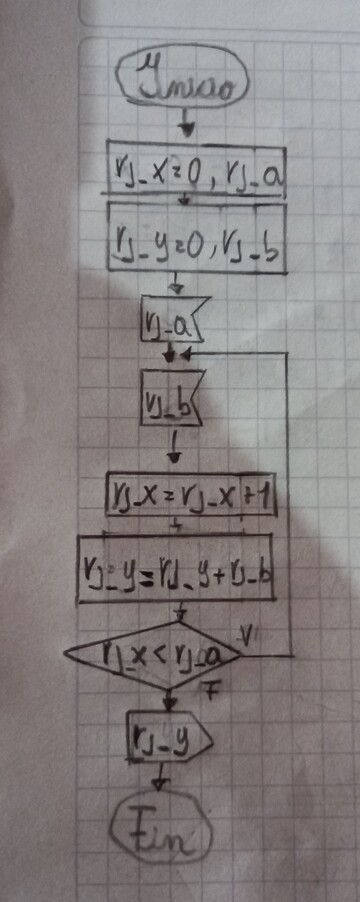 Inicio
rj_x=0, rj_a
rj_y=0, rj_b
rj_a
rj_b
rj_x=rj_x+1
rj_y=rj_y+rj_b
rj_x<rj_a
V
F
rj_y
Fin